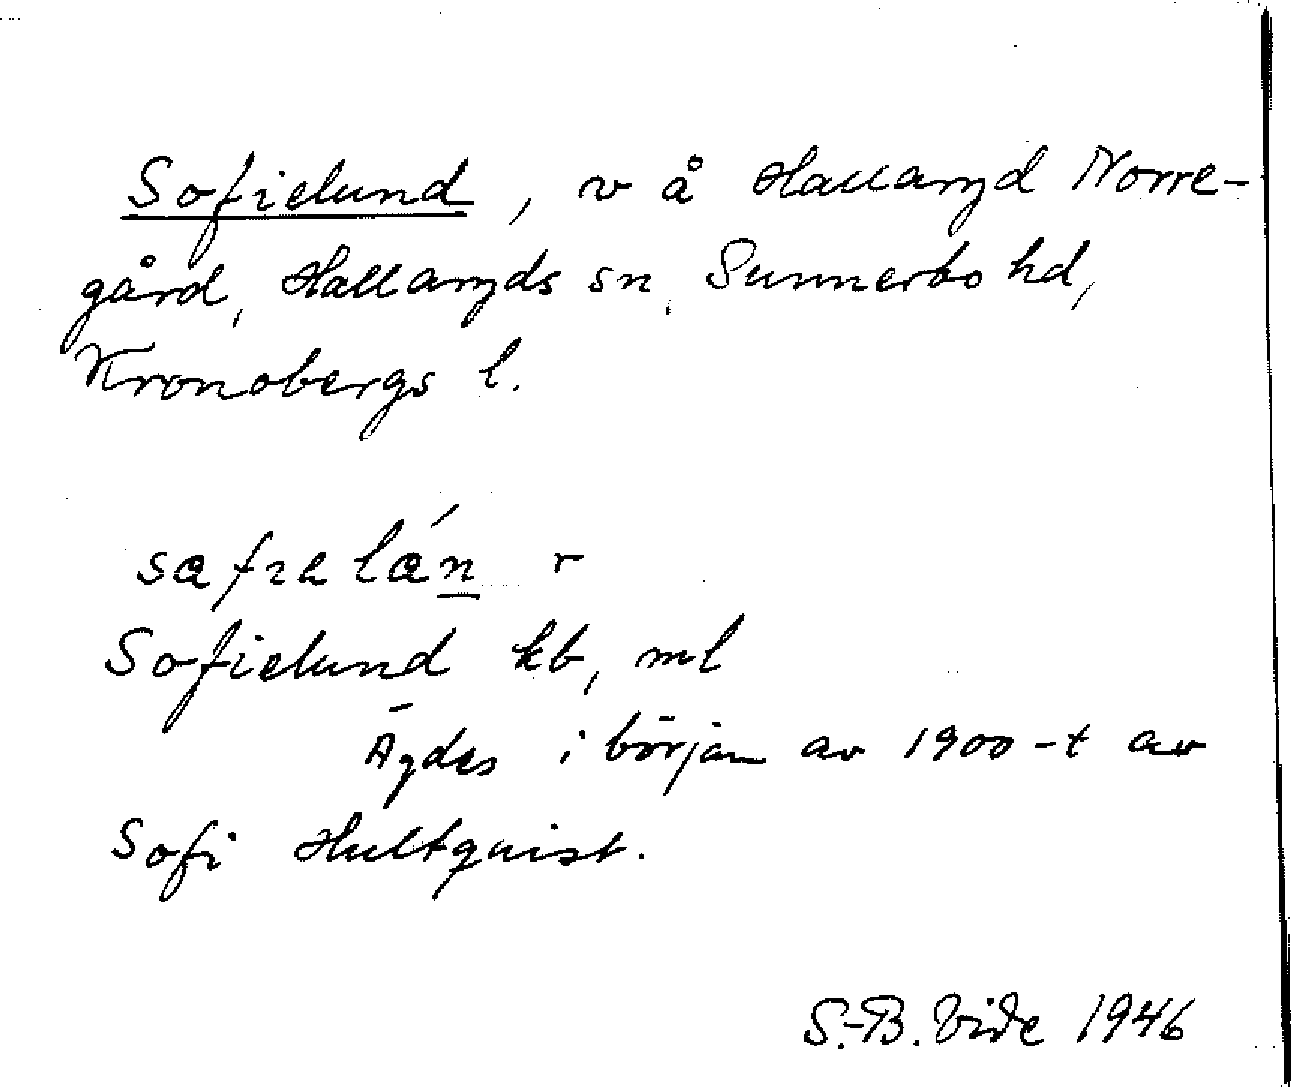 Sofielund, v å Hallaryd Norre-
gård, Hallaryds sn, Sunnerbo hd,
Kronobergs l.
safɩelán r
Sofielund kb, ml
Ägdes i början av 1900-t av
Sofi Hultquist.
S.-B. Vide 1946